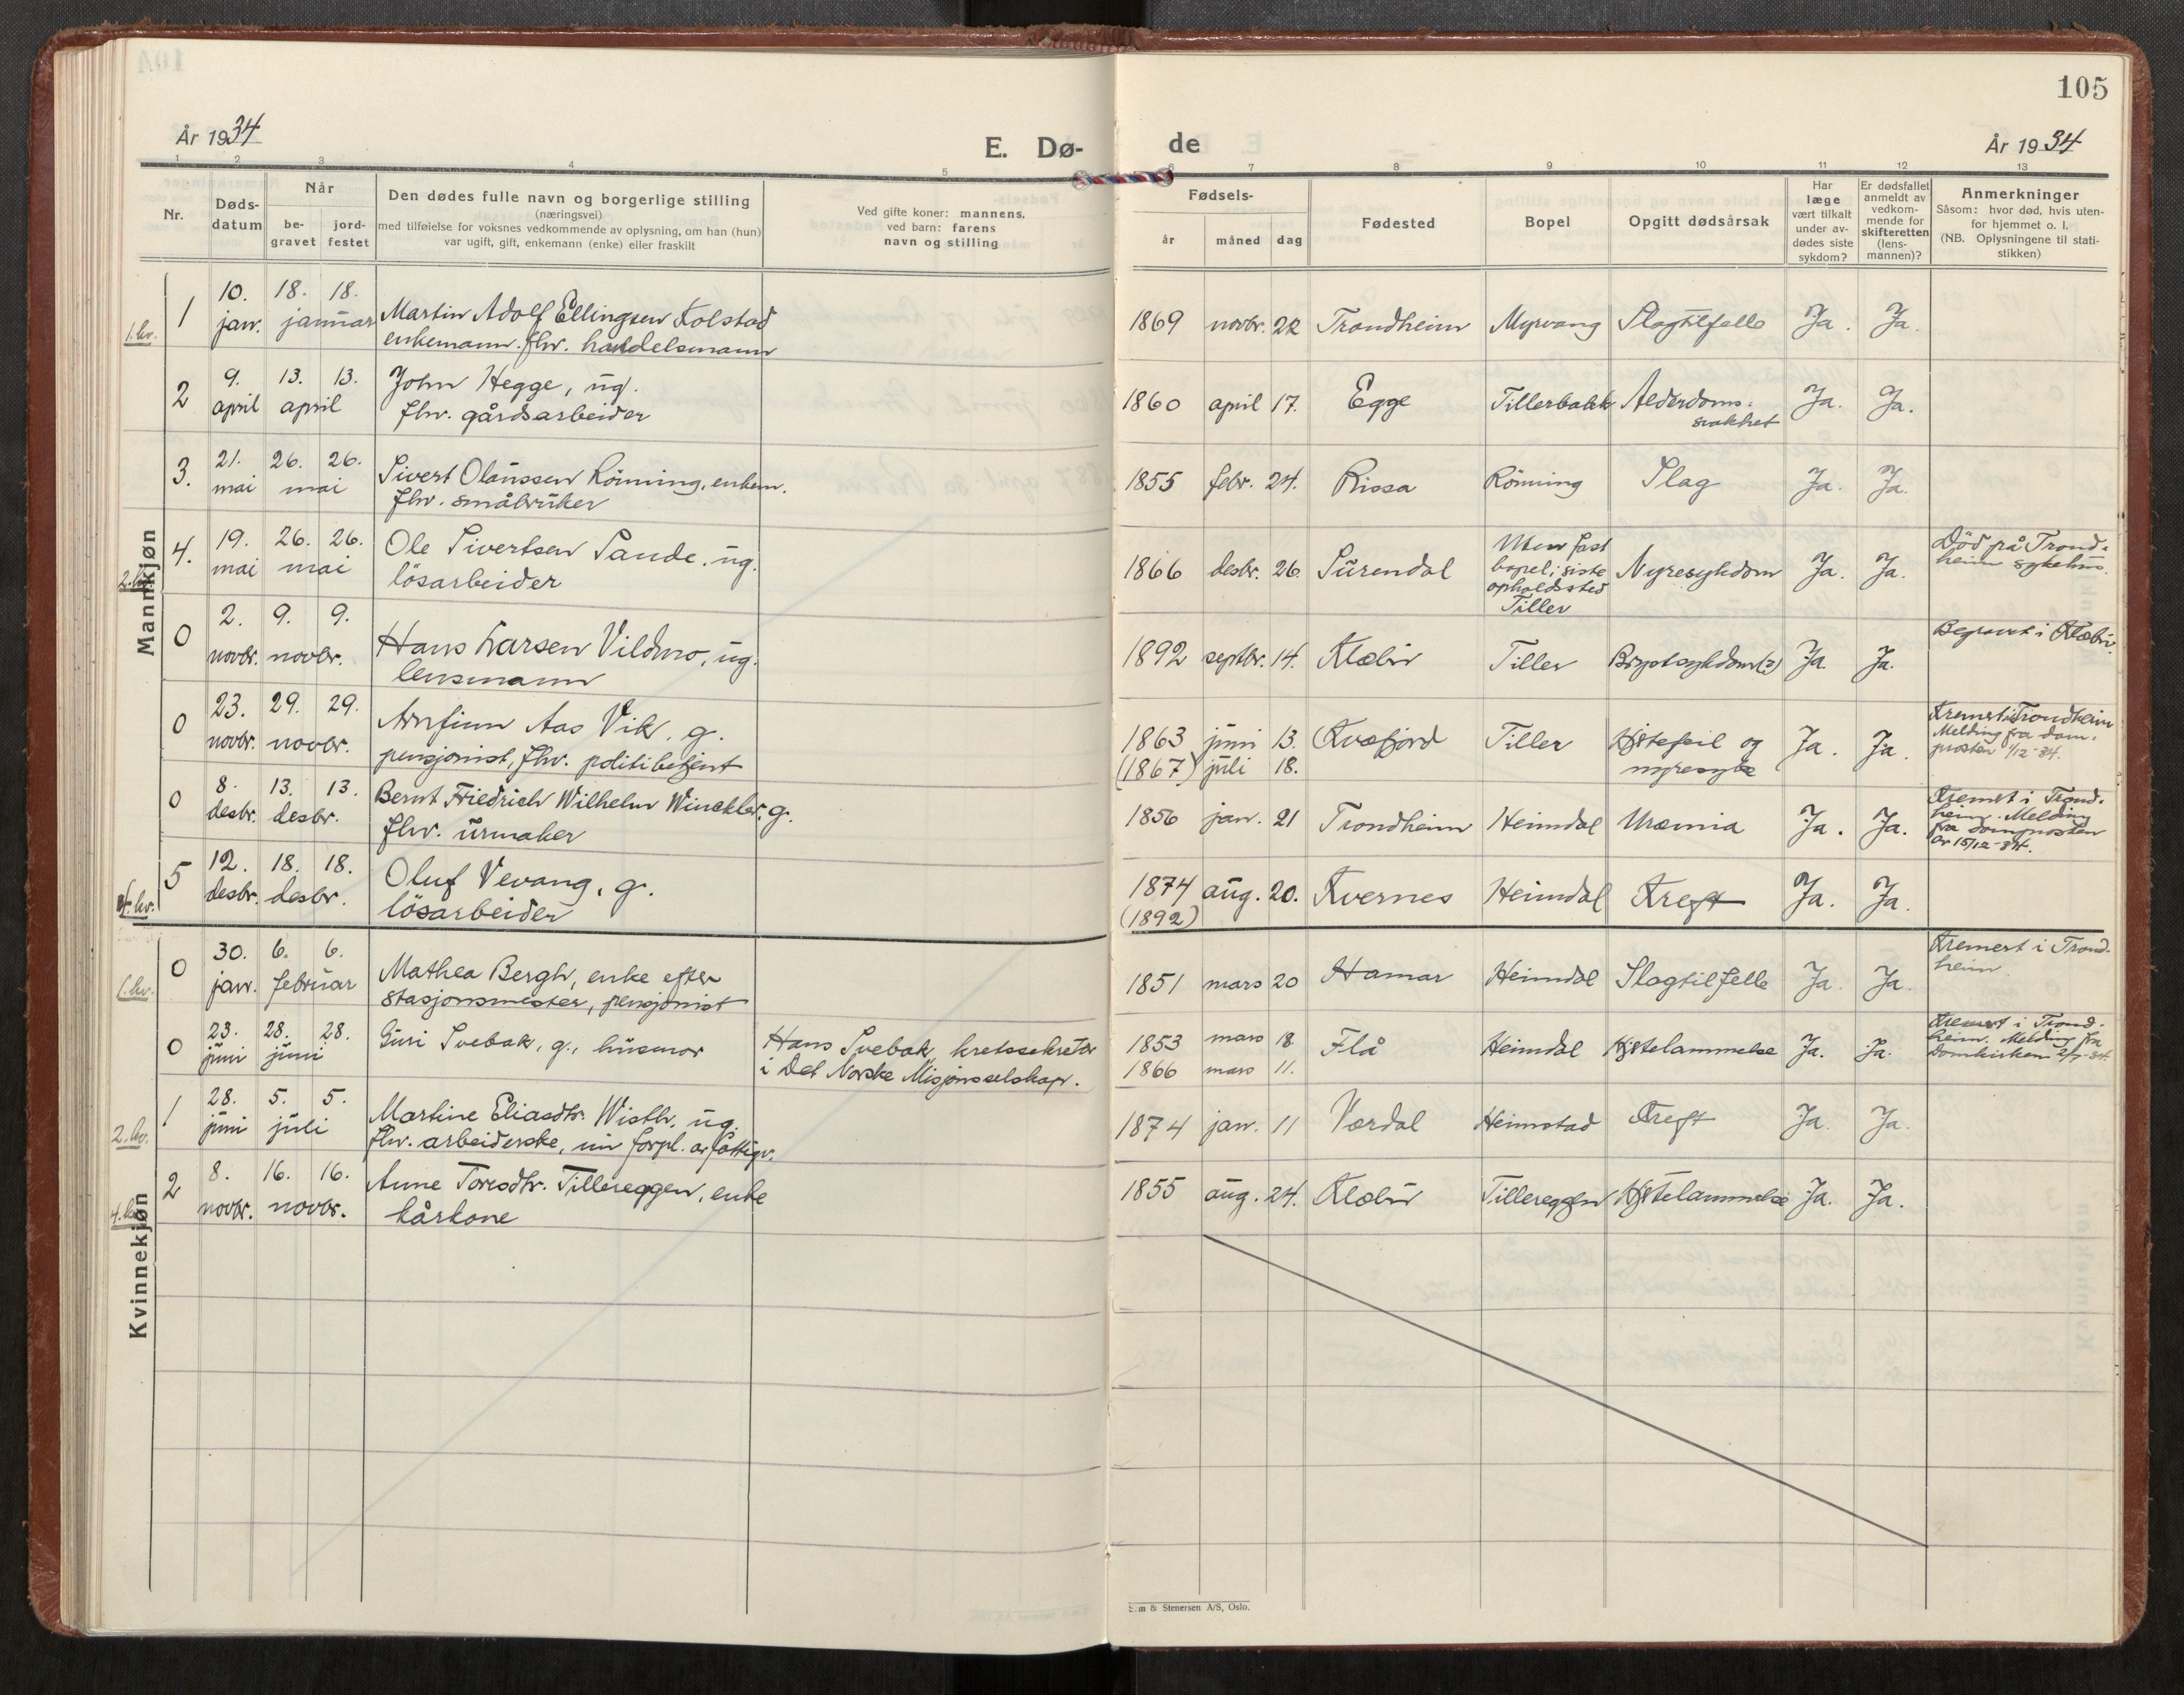 105
År 1934
E. Dø-
de
År 1934
1 2 3 4 5 6 7 8 9 10 11 12 13
Nr.
Døds-
datum
Når
be-
gravet
jord-
festet
Den dødes fulle navn og borgerlige stilling
(næringsvei)
med tilføielse for voksnes vedkommende av oplysning, om han (hun)
var ugift, gift, enkemann (enke) eller fraskilt
Ved gifte koner: mannens,
ved barn: farens
navn og stilling
Fødsels-
år
måned
dag
Fødested
Bopel
Opgitt dødsårsak
Har
læge
vært tilkalt
under av-
dødes siste
sykdom?
Er dødsfallet
anmeldt av
vedkom-
mende for
skifteretten
(lens-
mannen)?
Anmerkninger
Såsom: hvor død, hvis uten-
for hjemmet o. l.
(NB. Oplysningene til stati-
stikken)
Mannkjøn
1.kv.
1
10. 18. 18.
jan. januar
Martin Adolf Ellingsen Kolstad
enkemann. fhv. handelsmann
1869 novbr. 22 Trondheim Myrvang Slagtilfelle Ja. Ja.
2
9. 13. 13.
april april
John Hegge, ug.
fhv. gårdsarbeider
1860 april 17. Egge Tillerbakk Alderdoms-
svakhet
Ja. Ja.
3.
21. 26. 26.
mai mai
Sivert Olaussen Rönning, enkem.
fhv. småbruker
1855 febr. 24. Rissa Rönning Slag Ja. Ja.
4.
19. 26. 26.
mai mai
Ole Sivertsen Sande, ug.
lösarbeider
1866 desbr. 26. Surendal
Uten fast
bopel; siste
opholdssted
Tiller
Nyresykdom Ja. Ja.
Död på Trond-
heim sykehus.
0
2. 9. 9.
novbr. novbr.
Hans Larsen Vildmo, ug.
lensmann
1892 septbr. 14. Klæbu Tiller Brystsykdom(?) Ja. Ja.
Begravet i Klæbu.
0
23. 29. 29.
novbr. novbr.
Arnfinn Aas Vik. g.
pensjonist, fhv. politibetjent
1863 juni 13. Kvæfjord Tiller Hjertefeil og
nyresyke
(1867) juli 18.
Ja. Ja.
Kremert i Trondheim
Melding fra dom-
prosten 1/12-34.
0
8. 13. 13.
desbr. desbr.
Bernt Friedrich Wilhelm Winckler, g.
fhv. urmaker
1856 jan. 21 Trondheim Heimdal Uræmia Ja. Ja.
Kremert i Trond-
heim. Melding
fra domprosten
av 15/12-34.
4.kv.
5
12. 18. 18.
desbr. desbr.
Oluf Vevang, g.
lösarbeider
1874 aug. 20. Kvernes Heimdal Kreft Ja. Ja.
(1892)
Kvinnekjøn
1.kv.
0
30. 6. 6.
jan. februar
Mathea Bergh, enke efter
stasjonsmester, pensjonist
1851 mars 20 Hamar Heimdal Slagtilfelle Ja. Ja.
Kremert i Trond-
heim.
0
23. 28. 28.
juni juni
Guri Svebak, g., husmor
Hans Svebak, kretssekretær
i Det Norske Misjonsselskap.
1853 mars 18. Flå Heimdal Hjertelammelse Ja. Ja.
1866 mars 11.
Kremert i Trond-
heim. Melding fra
Domkirken 2/7-34
2.kv.
1
28. 5. 5.
juni juli
Martine Eliasdtr. Wisth, ug.
fhv. arbeiderske, nu forpl. av fattigv.
1874 jan. 11 Værdal Heimstad Kreft Ja. Ja.
4.kv.
2
8. 16. 16.
novbr. novbr.
Anne Toresdtr. Tillereggen, enke
kårkone
1855 aug. 24. Klæbu Tillereggen Hjertelammelse Ja. Ja.
& Stenersen A/S, Oslo.